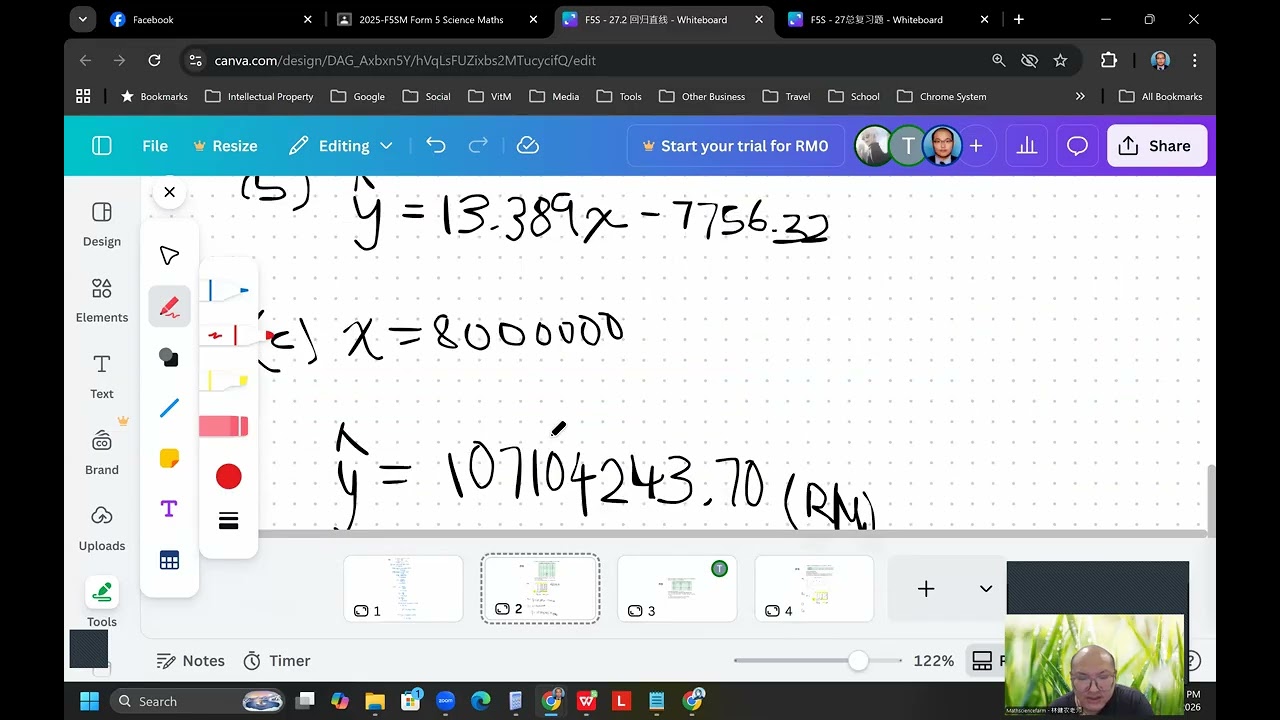 Facebook
2025-F5SM Form 5 Science Maths
F5S - 27.2 回归直线 - Whiteboard
F5S - 27总复习题 - Whiteboard
canva.com/design/DAG_Axbxn5Y/hVqLsFUZixbs2MTucycifQ/edit
Bookmarks
Intellectual Property
Google
Social
VitM
Media
Tools
Other Business
Travel
School
Chrome System
All Bookmarks
File
Resize
Editing
Start your trial for RM0
T
Share
Design
Elements
Text
Brand
Uploads
Tools
(b) ŷ = 13.389x - 7756.32
(c) x = 8000000
ŷ = 107104243.70 (RM)
1
2
3
T
4
Notes
Timer
122%
Search
zoom
1
Mathsciencefarm - 林健农老师
PM
026